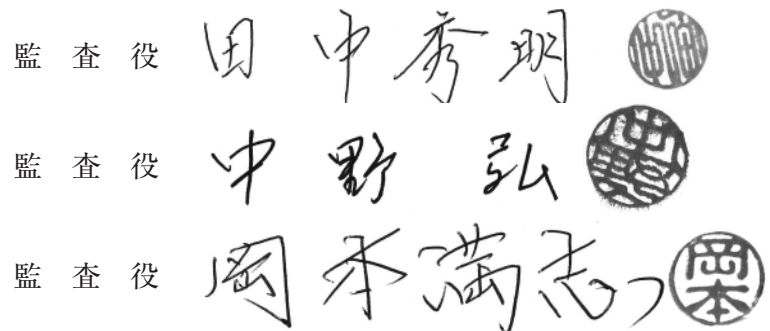 監査役 田中秀明
監査役 中野弘
監査役 岡本満志 岡本